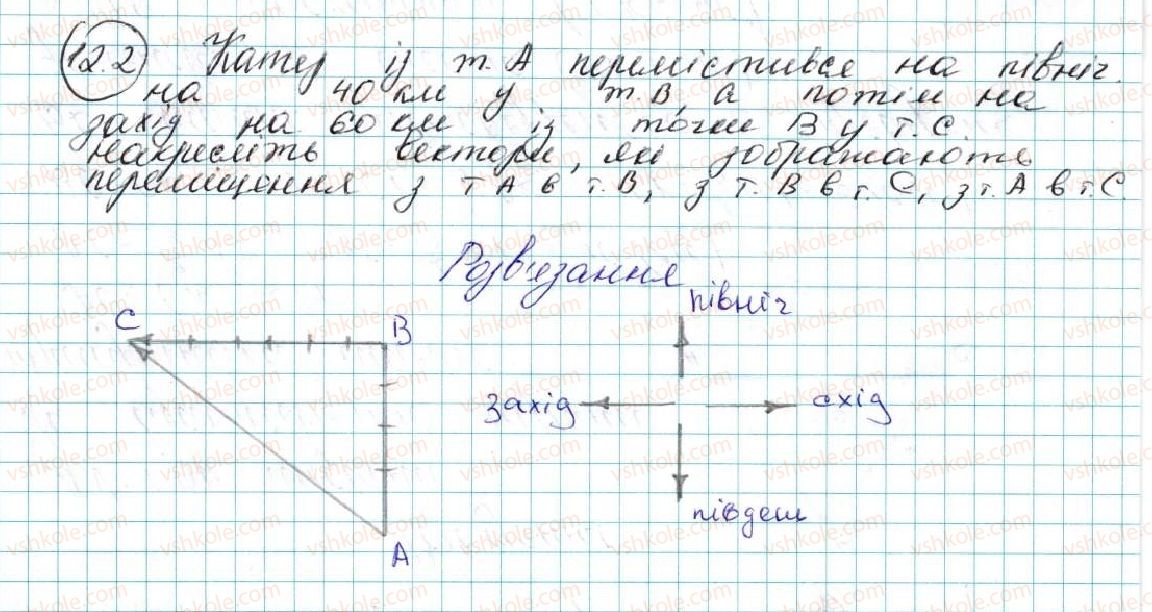 12.2 Катер із т. А перемістився на північ
на 40 км у т. В, а потім на
захід на 60 км із точки В у т. С.
Накресліть вектори, які зображають
переміщення з т А в т. В, з т. В в т. С, з т. А в т. С.
Розв'язання
північ
С В
захід схід
південь
А